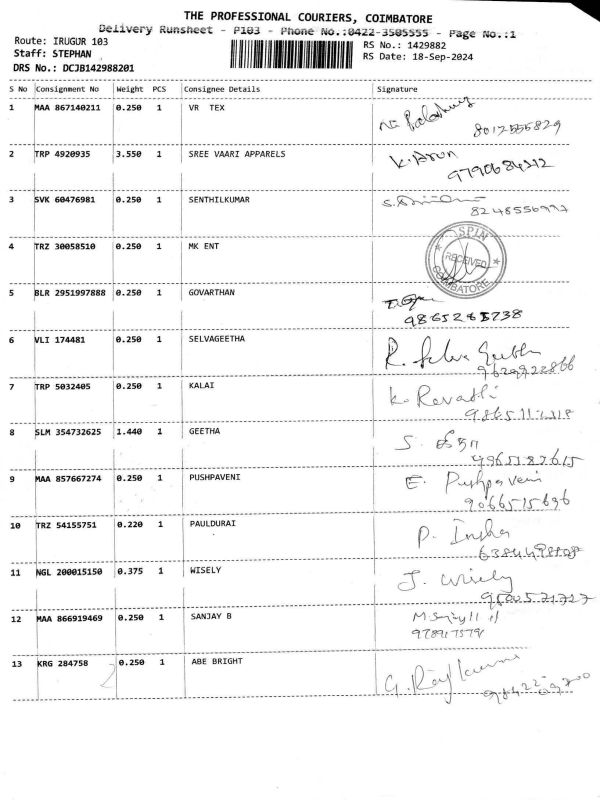 THE PROFESSIONAL COURIERS, COIMBATORE
Delivery Runsheet - P103 - Phone No.:0422-3505555 - Page No.:1
Route: IRUGUR 103
RS No.: 1429882
Staff: STEPHAN
RS Date: 18-Sep-2024
DRS No.: DCJB142988201
S No Consignment No Weight PCS Consignee Details Signature
1 MAA 867140211 0.250 1 VR TEX
8012555829
2 TRP 4920935 3.550 1 SREE VAARI APPARELS K. Arun
9790684212
3 SVK 60476981 0.250 1 SENTHILKUMAR
8248556997
4 TRZ 30058510 0.250 1 MK ENT
SPIN
RECEIVED
COIMBATORE
5 BLR 2951997888 0.250 1 GOVARTHAN
9865265738
6 VLI 174481 0.250 1 SELVAGEETHA R. Selva Geetha
9629922866
7 TRP 5032405 0.250 1 KALAI K. Revathi
8 SLM 354732625 1.440 1 GEETHA S. கீதா
9 MAA 857667274 0.250 1 PUSHPAVENI E. Pushpaveni
9066515696
10 TRZ 54155751 0.220 1 PAULDURAI P.
11 NGL 200015150 0.375 1 WISELY J. Wisely
12 MAA 866919469 0.250 1 SANJAY B
13 KRG 284758 0.250 1 ABE BRIGHT G. Rajkumar